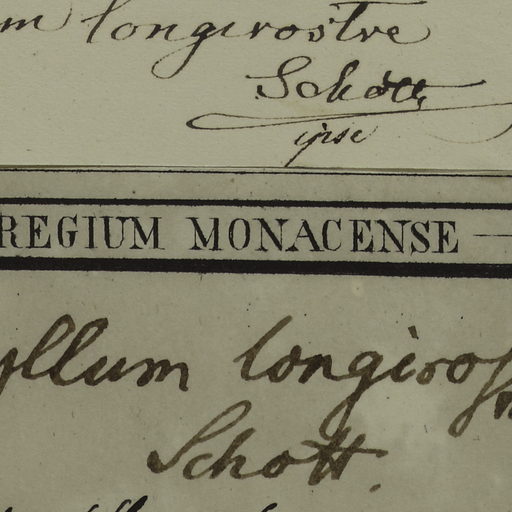 m longirostre
Schott
ipse
REGIUM MONACENSE
yllum longiros
Schott.